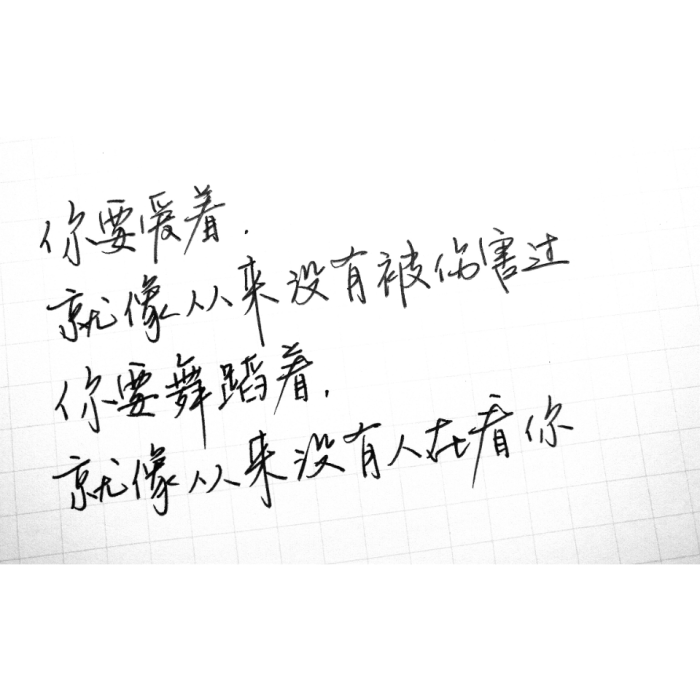 你要爱着.
就像从来没有被伤害过
你要舞蹈着,
就像从来没有人在看你